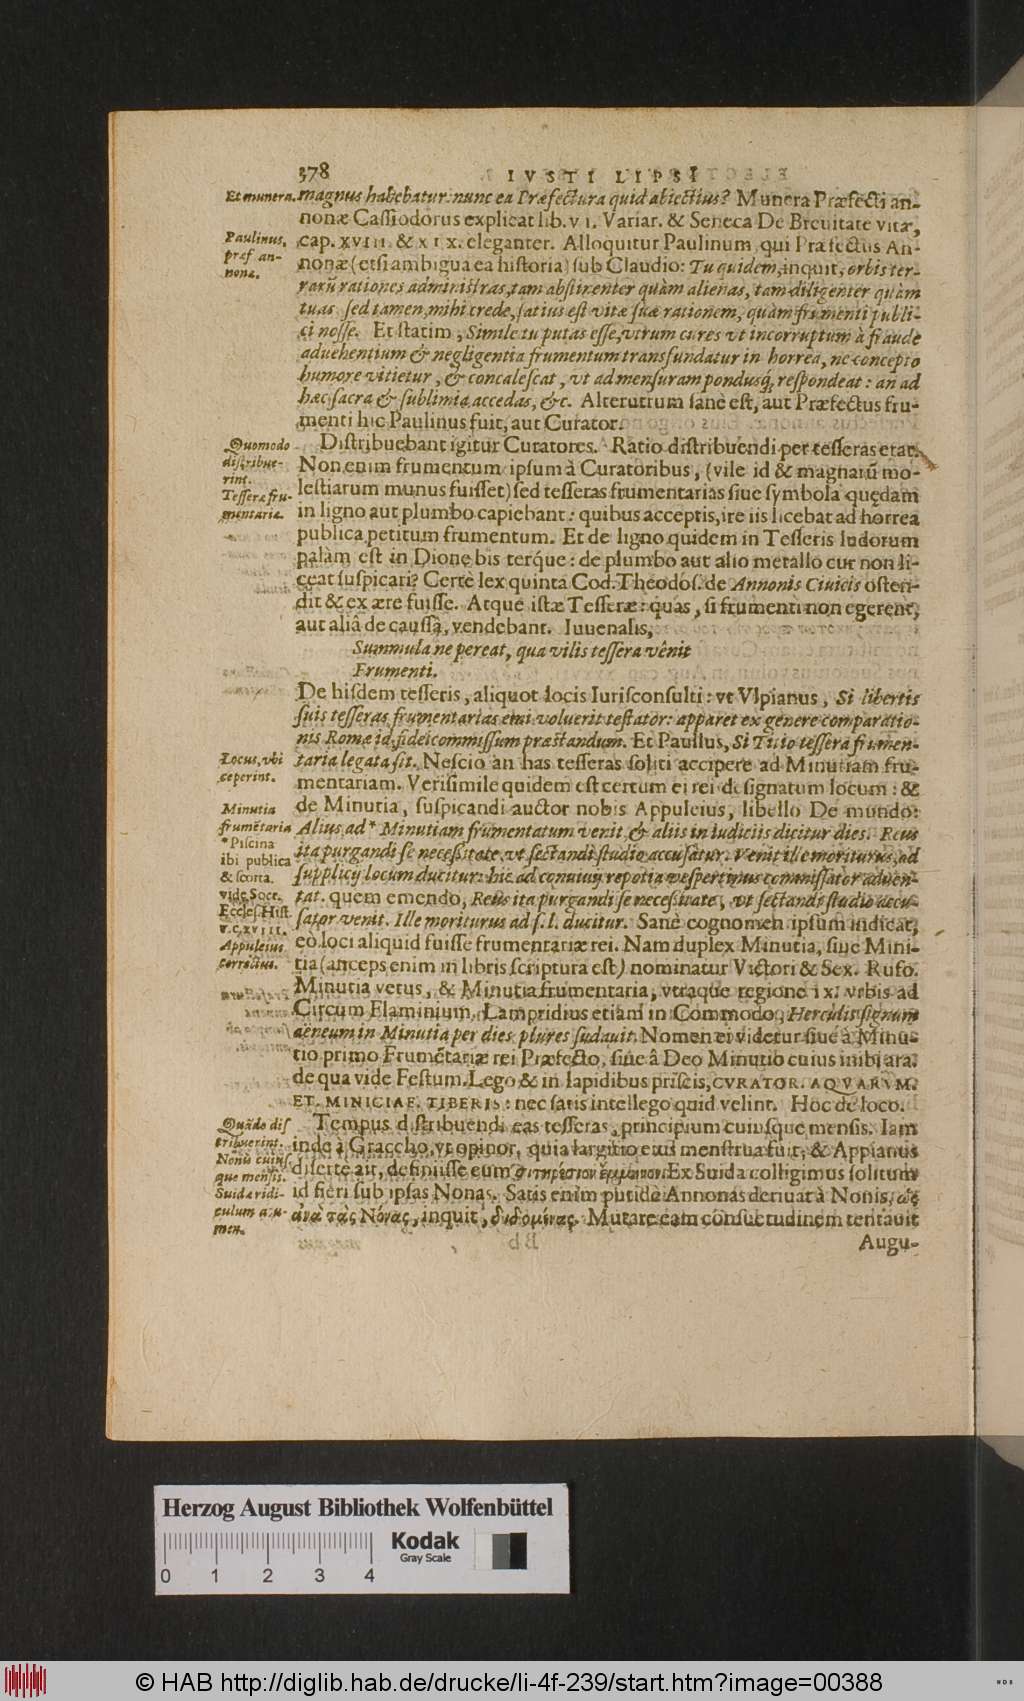 378
IVSTI LIPSI
Et munera. magnus habebatur: nunc ea Præfectura quid abiectius? Munera Præfecti an-
nonæ Caſſiodorus explicat lib. VI. Variar. & Seneca De Breuitate vitæ,
Paulinus, cap. XVIII. & XIX. eleganter. Alloquitur Paulinum, qui Præfectus An-
præf an- nonæ (etſi ambigua ea hiſtoria) ſub Claudio: Tu quidem, inquit, orbis ter-
nonæ. rarũ rationes adminiſtras, tam abſtinenter quàm alienas, tam diligenter quàm
tuas. ſed tamen, mihi crede, ſatius eſt vitæ ſuæ rationem, quàm frumenti publi-
ci noſſe. Et ſtatim, Simile tu putas eſſe, vtrum cures vt incorruptum à fraude
aduehentium & negligentia frumentum transfundatur in horrea, ne concepto
humore vitietur, & concaleſcat, vt ad menſuram pondusq́, reſpondeat: an ad
hæc ſacra & ſublimia accedas, &c. Alterutrum ſanè eſt, aut Præfectus fru-
menti hic Paulinus fuit, aut Curator.
Quomodo Diſtribuebant igitur Curatores. Ratio diſtribuendi per teſſeras erat.
diſtribue- Non enim frumentum ipſum à Curatoribus, (vile id & magnarũ mo-
rint.
Teſſeræ fru- leſtiarum munus fuiſſet) ſed teſſeras frumentarias ſiue ſymbola quędam
mentariæ. in ligno aut plumbo capiebant: quibus acceptis, ire iis licebat ad horrea
publica petitum frumentum. Et de ligno quidem in Teſſeris ludorum
palàm eſt in Dione bis terq́ue: de plumbo aut alio metallo cur non li-
ceat ſuſpicari? Certè lex quinta Cod. Theodoſ. de Annonis Ciuicis oſten-
dit & ex ære fuiſſe. Atque iſtæ Teſſeræ: quas, ſi frumenti non egerent,
aut aliâ de cauſſa, vendebant. Iuuenalis,
Summula ne pereat, qua vilis teſſera vênit
Frumenti.
De hiſdem teſſeris, aliquot locis Iuriſconſulti: vt Vlpianus, Si libertis
ſuis teſſeras frumentarias emi voluerit teſtator: apparet ex genere comparatio-
nis Romæ id fideicommiſſum præſtandum. Et Paullus, Si Titio teſſera frumen-
Locus, vbi taria legata ſit. Neſcio an has teſſeras ſoliti accipere ad Minutiam fru-
ceperint. mentariam. Veriſimile quidem eſt certum ei rei deſignatum locum: &
Minutia de Minutia, ſuſpicandi auctor nobis Appuleius, libello De mundo:
frumẽtaria Alius ad * Minutiam frumentatum venit, & aliis in iudiciis dicitur dies. Reus
* Piſcina ita purgandi ſe neceſſitate, vt ſectandi ſtudio accuſatur. Venit ille moriturus, ad
ibi publica
& ſcorta. ſupplicij locum ducitur: hic ad conuiuij repotia veſpertinus commiſſator aduen-
vide Socr. tat. quem emendo, Reus ita purgandi ſe neceſſitate, vt ſectandi ſtudio accu-
Eccleſ. Hiſt. ſator venit. Ille moriturus ad ſ. l. ducitur. Sanè cognomen ipſum indicat,
V.C.XVIII.
Appuleius eo loci aliquid fuiſſe frumentariæ rei. Nam duplex Minutia, ſiue Mini-
correctus. tia (anceps enim in libris ſcriptura eſt) nominatur Victori & Sex. Rufo.
Minutia vetus, & Minutia frumentaria, vtraque regione IX. vrbis ad
Circum Flaminium. Lampridius etiam in Commodo, Herculis ſignum
aeneum in Minutia per dies plures ſudauit. Nomen ei videtur ſiue à Minu-
tio primo Frumẽtariæ rei Præfecto, ſiue â Deo Minutio cuius inibi ara.
de qua vide Feſtum. Lego & in lapidibus priſcis, CVRATOR. AQVARVM.
ET. MINICIAE. TIBERIS: nec ſatis intellego quid velint. Hoc de loco.
Quãdo diſ Tempus diſtribuendi eas teſſeras, principium cuiuſque menſis. Iam
tribuerint. inde à Graccho, vt opinor, quia largitio eius menſtrua fuit, & Appianus
Nonis cuiuſ-
que menſis. diſerte ait, definiiſſe eum σιτηρέσιον ἔμμηνον. Ex Suida colligimus ſolitum
Suidæ ridi- id fieri ſub ipſas Nonas. Satis enim putidè Annonas deriuat à Nonis, ὡς
culum
men. ἀνὰ τὰς Νόνας, inquit, διδομένας. Mutare eam conſuetudinem tentauit
Augu-
Herzog August Bibliothek Wolfenbüttel
Kodak
Gray Scale
0 1 2 3 4
© HAB http://diglib.hab.de/drucke/li-4f-239/start.htm?image=00388